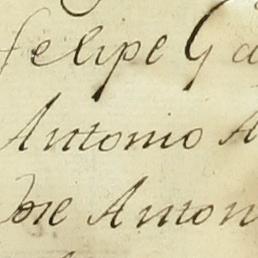 Felipe Ga
Antonio A
Jose Anton